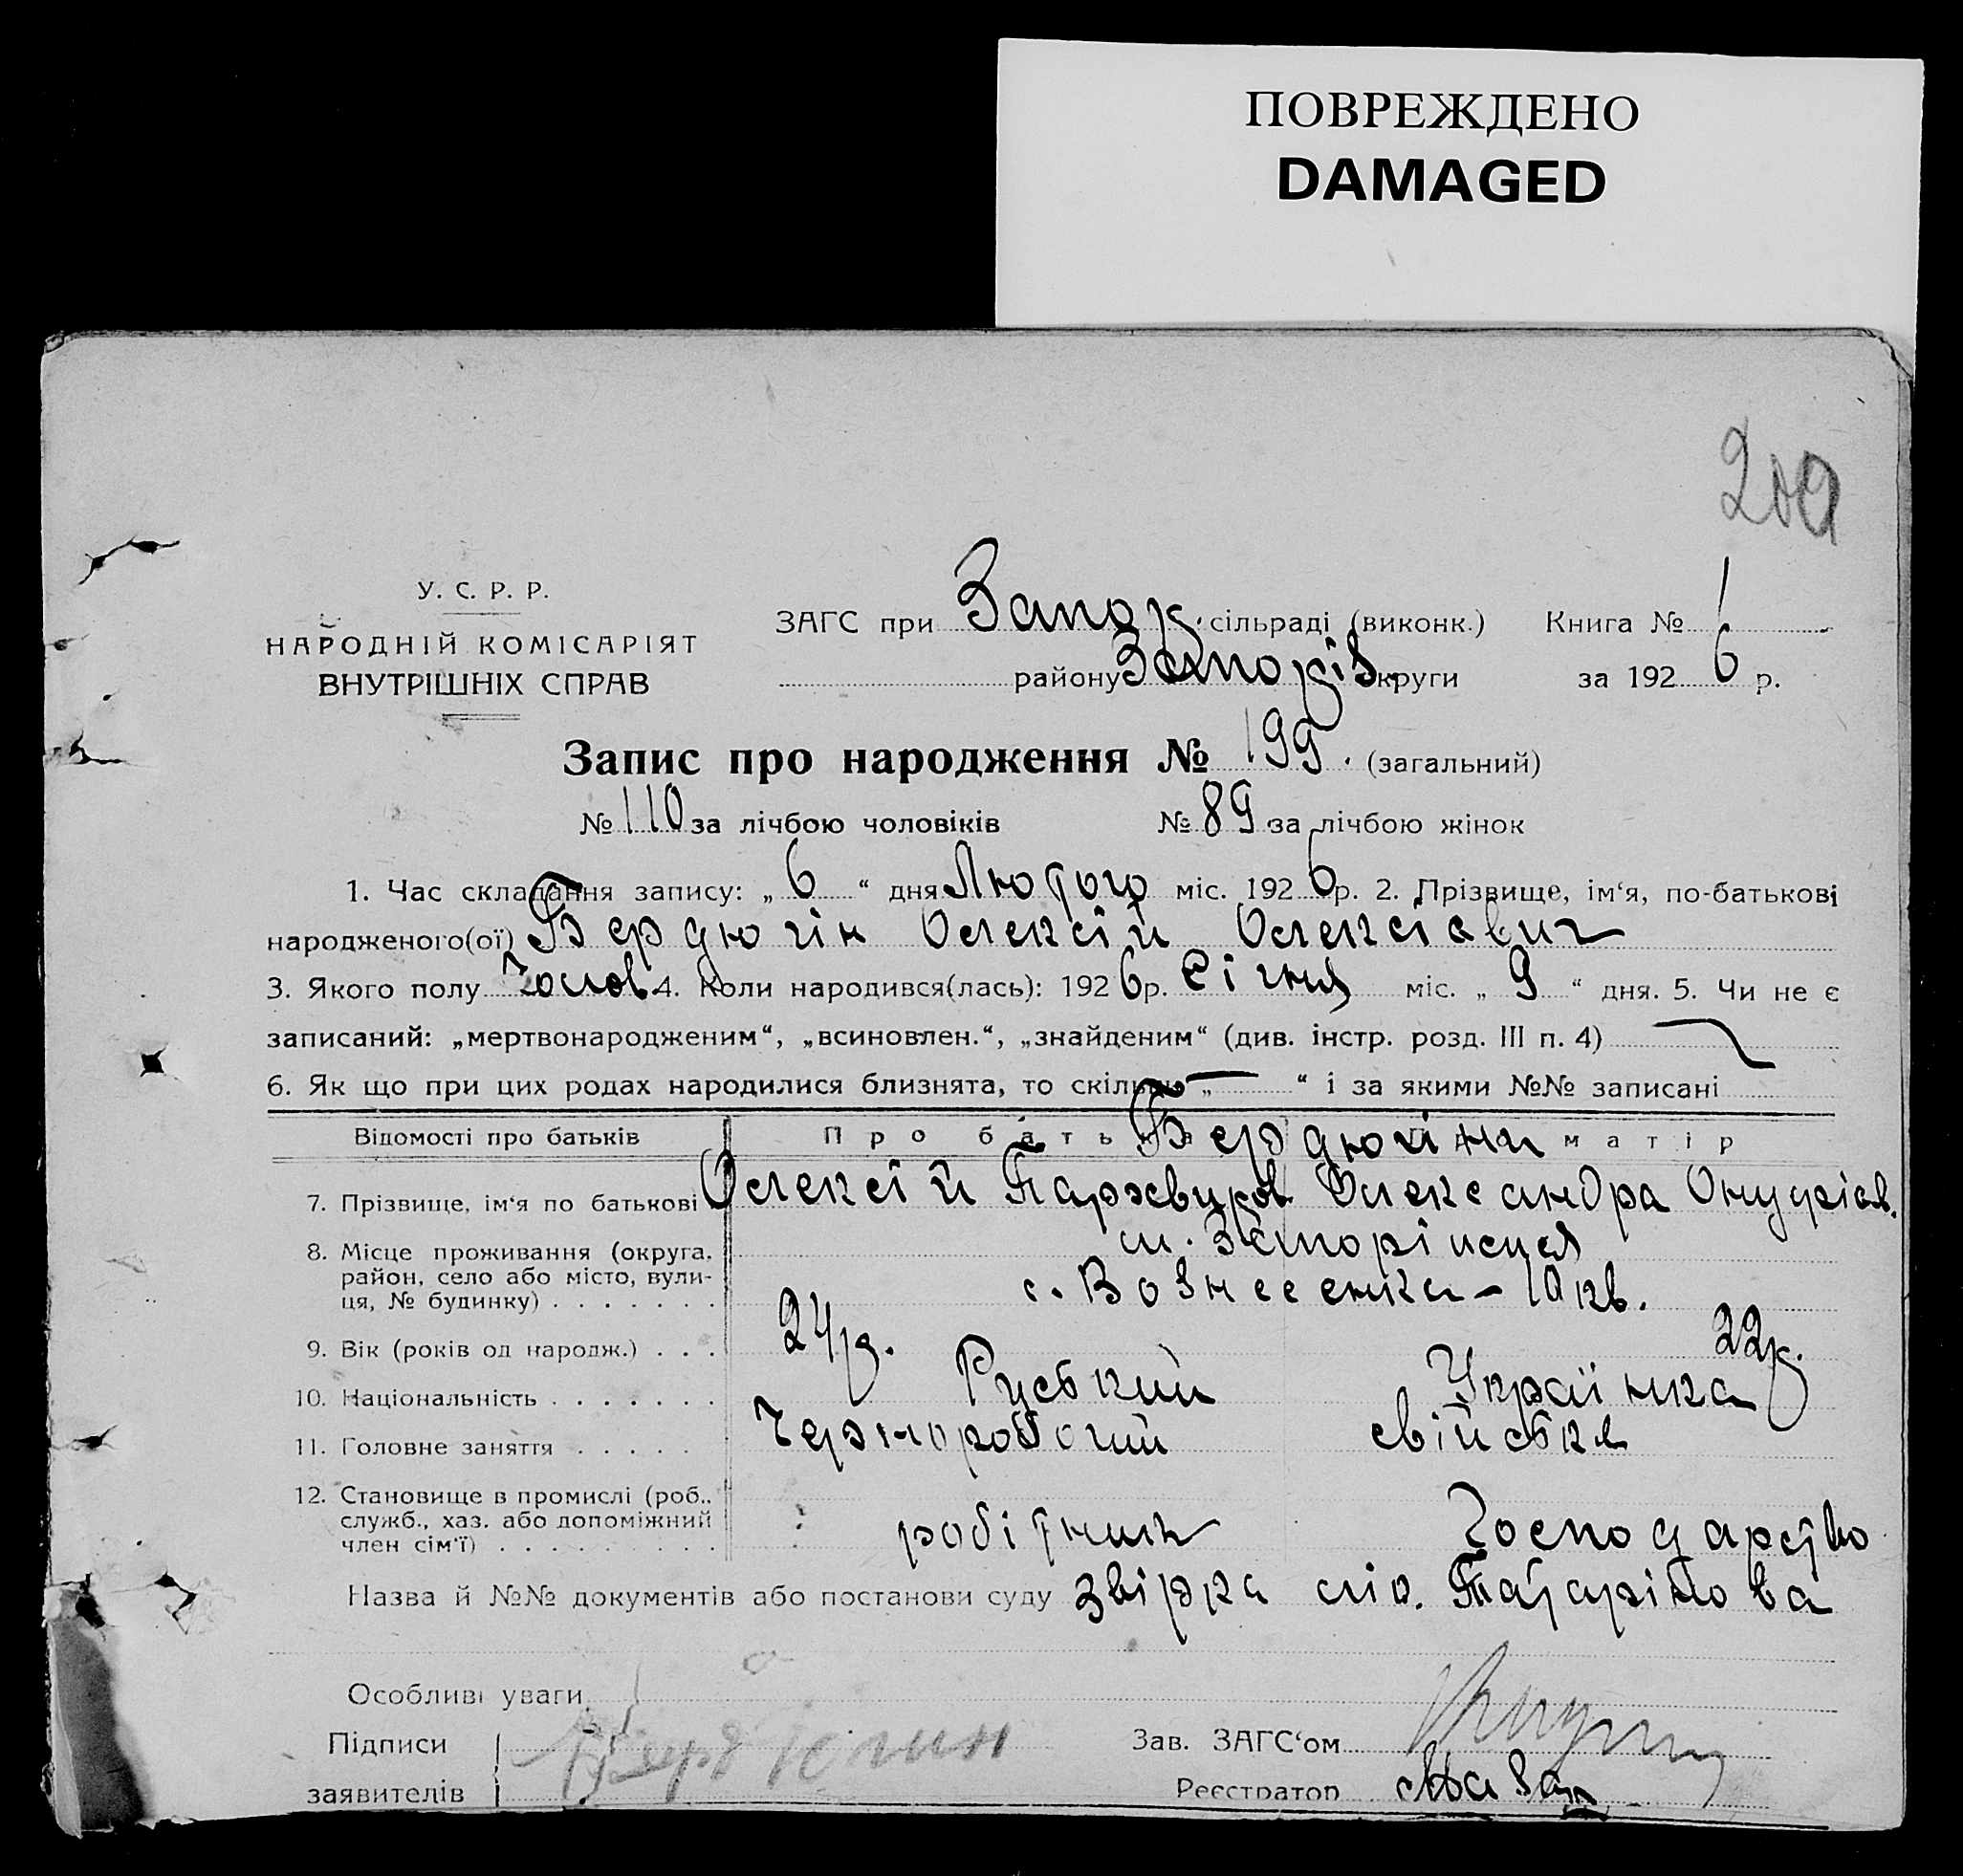 ПОВРЕЖДЕНО
DAMAGED
200
У. С. Р. Р.
НАРОДНІЙ КОМІСАРІЯТ
ВНУТРІШНІХ СПРАВ
ЗАГС при Запор. сільраді (виконк.) Книга № 1
району Запоріз. круги за 192 6 р.
Запис про народження № 199. (загальний)
№ 110 за лічбою чоловіків № 89 за лічбою жінок
1. Час складання запису: „ 6 “ дня Лютого міс. 192 6 р. 2. Прізвище, ім‘я, по-батькові
народженого(ої) Бердюгін Олексій Олексієвич
3. Якого полу Чолов. 4. Коли народився(лась): 192 6 р. Січня міс. „ 9 “ дня. 5. Чи не є
записаний: „мертвонародженим“, „всиновлен.“, „знайденим“ (див. інстр. розд. III п. 4)
6. Як що при цих родах народилися близнята, то скільки „ — “ і за якими №№ записані
Відомості про батьків Про батька Бердюгіни матір
7. Прізвище, ім‘я по батькові Олексій Олександра Онуфріев.
8. Місце проживання (округа, м. Запоріжжя
район, село або місто, вули-
ця, № будинку) . . . . . . . с. Вознесенка – 10 кв.
9. Вік (років од народж.) . . . 24р. 22р.
10. Національність . . . . . . . Руський Українка
11. Головне заняття . . . . . Чорноробочий свійське
12. Становище в промислі (роб.,
служб., хаз. або допоміжний робітник Господарство
член сім‘ї) . . . . . . . . .
Назва й №№ документів або постанови суду звірка
Особливі уваги
Підписи Бердюгин Зав. ЗАГС‘ом
заявителів Реєстратор